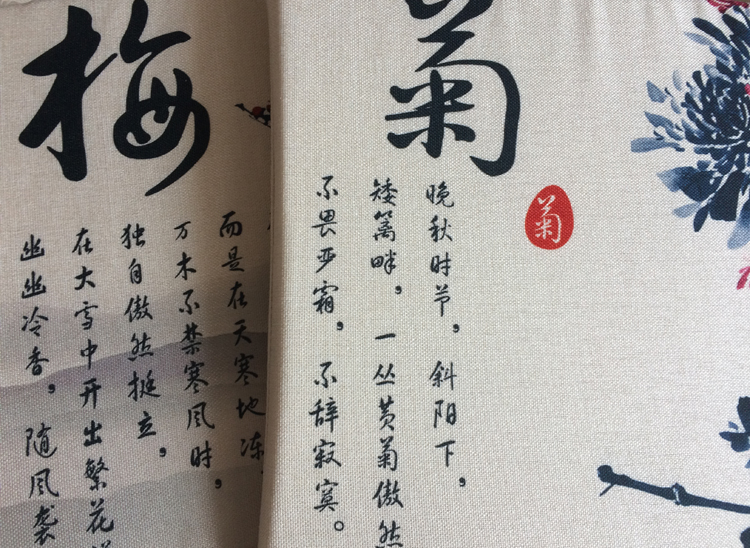 菊
菊
晚秋时节，斜阳下，
矮篱畔，一丛黄菊傲然
不畏严霜，不辞寂寞。
梅
而是在天寒地冻
万木不禁寒风时，
独自傲然挺立，
在大雪中开出繁花
幽幽冷香，随风袭